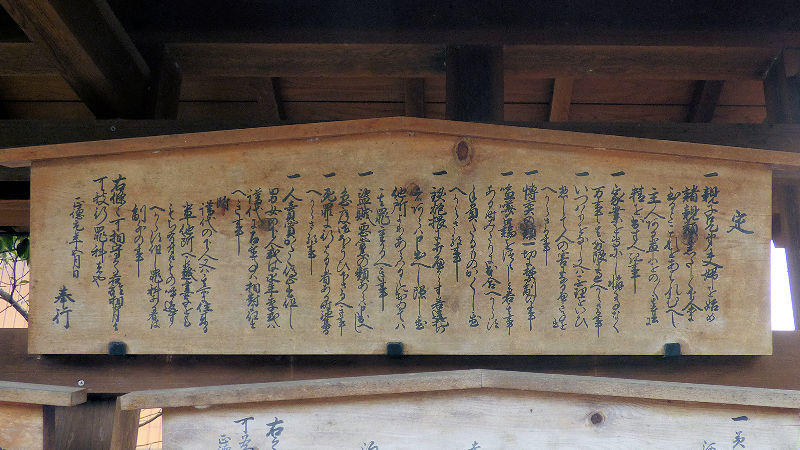 定
一 親子兄弟夫婦を始め
諸親類にしたしく下人等
に至るまてこれをあはれむへし
主人有輩はをのゝゝ其奉公に
精を出すへき事
一 家業を専にし懈る事なく
万事其分限に過へからさる事
一 いつはりをなし又は無理をいひ
惣して人の害になるへき事を
すへからさる事
一 博奕の類一切に禁制の事
一 喧嘩口論をつゝしみ若其事
ある時みたりに出合へからす
手負たる者かくし置
へからさる事
一 鉄砲猥に打へからす若違犯の
者あらは申出へし隠し置
他所よりあらはるゝにおゐては
其罪重かるへき事
一 盗賊悪党の類あらは申出へし
急度御ほうひ下さるへき事
一 死罪に行はるゝ者ある時馳集る
へからさる事
一 人売買かたく停止す但
男女の下人或は永年季或は
譜代に召置事は相対に任す
へき事
附
譜代の下人又は其所に住来る
輩他所へ罷越妻子をも
へからす但罪科ある者は
制外の事
右條々可相守之若於相背は
可被行罪科者也
正徳元年五月日
奉行